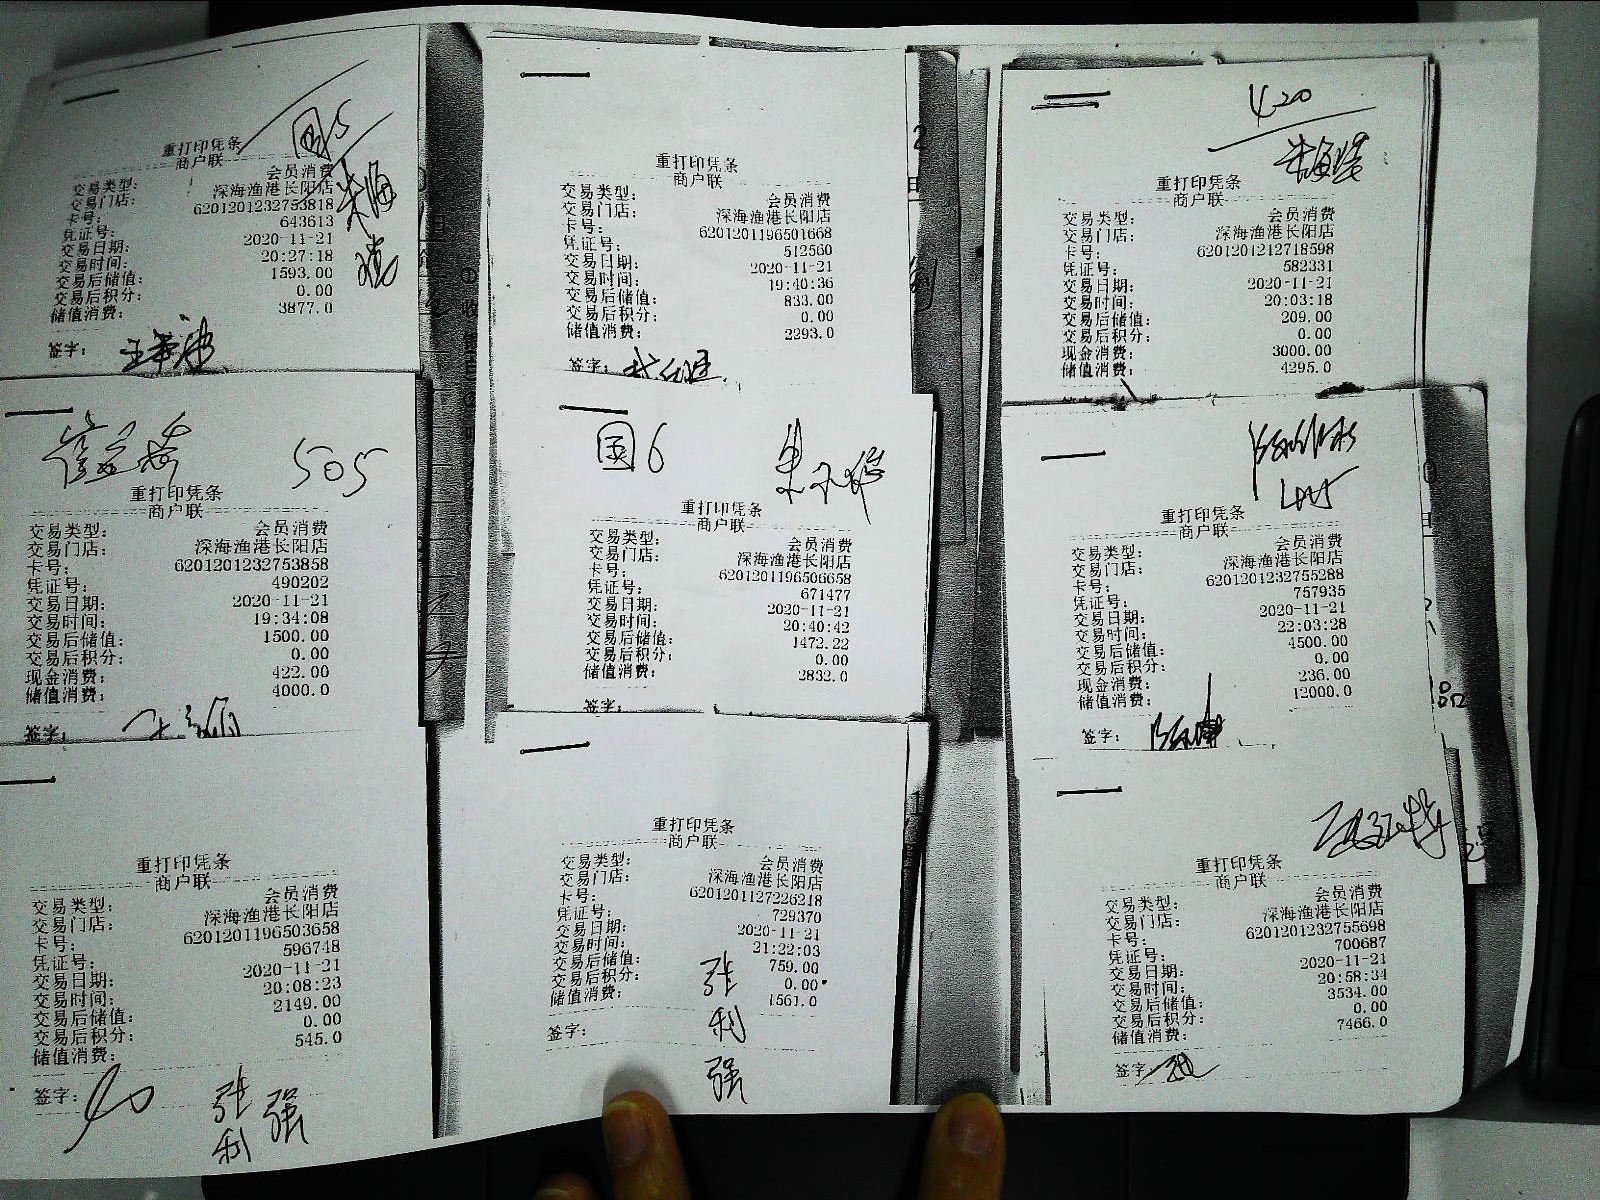 国5
重打印凭条
商户联
交易类型: 会员消费
交易门店: 深海渔港长阳店
卡号: 6201201232753818
凭证号: 643613
交易日期: 2020-11-21
交易时间: 20:27:18
交易后储值: 1593.00
交易后积分: 0.00
储值消费: 3877.0
签字:
重打印凭条
商户联
交易类型: 会员消费
交易门店: 深海渔港长阳店
卡号: 6201201196501668
凭证号: 512560
交易日期: 2020-11-21
交易时间: 19:40:36
交易后储值: 833.00
交易后积分: 0.00
储值消费: 2293.0
签字:
420
重打印凭条
商户联
交易类型: 会员消费
交易门店: 深海渔港长阳店
卡号: 6201201212718598
凭证号: 582331
交易日期: 2020-11-21
交易时间: 20:03:18
交易后储值: 209.00
交易后积分: 0.00
现金消费: 3000.00
储值消费: 4295.0
505
重打印凭条
商户联
交易类型: 会员消费
交易门店: 深海渔港长阳店
卡号: 6201201232753858
凭证号: 490202
交易日期: 2020-11-21
交易时间: 19:34:08
交易后储值: 1500.00
交易后积分: 0.00
现金消费: 422.00
储值消费: 4000.0
签字:
国6
重打印凭条
商户联
交易类型: 会员消费
交易门店: 深海渔港长阳店
卡号: 6201201196506658
凭证号: 671477
交易日期: 2020-11-21
交易时间: 20:40:42
交易后储值: 1472.22
交易后积分: 0.00
储值消费: 2832.0
签字:
重打印凭条
商户联
交易类型: 会员消费
交易门店: 深海渔港长阳店
卡号: 6201201232755288
凭证号: 757935
交易日期: 2020-11-21
交易时间: 22:03:28
交易后储值: 4500.00
交易后积分: 0.00
现金消费: 236.00
储值消费: 12000.0
签字:
重打印凭条
商户联
交易类型: 会员消费
交易门店: 深海渔港长阳店
卡号: 6201201196503658
凭证号: 596748
交易日期: 2020-11-21
交易时间: 20:08:23
交易后储值: 2149.00
交易后积分: 0.00
储值消费: 545.0
签字:
张利强
重打印凭条
商户联
交易类型: 会员消费
交易门店: 深海渔港长阳店
卡号: 6201201127226218
凭证号: 729370
交易日期: 2020-11-21
交易时间: 21:22:03
交易后储值: 759.00
交易后积分: 0.00
储值消费: 1561.0
签字:
张利强
重打印凭条
商户联
交易类型: 会员消费
交易门店: 深海渔港长阳店
卡号: 6201201232755698
凭证号: 700687
交易日期: 2020-11-21
交易时间: 20:58:34
交易后储值: 3534.00
交易后积分: 0.00
储值消费: 7466.0
签字: